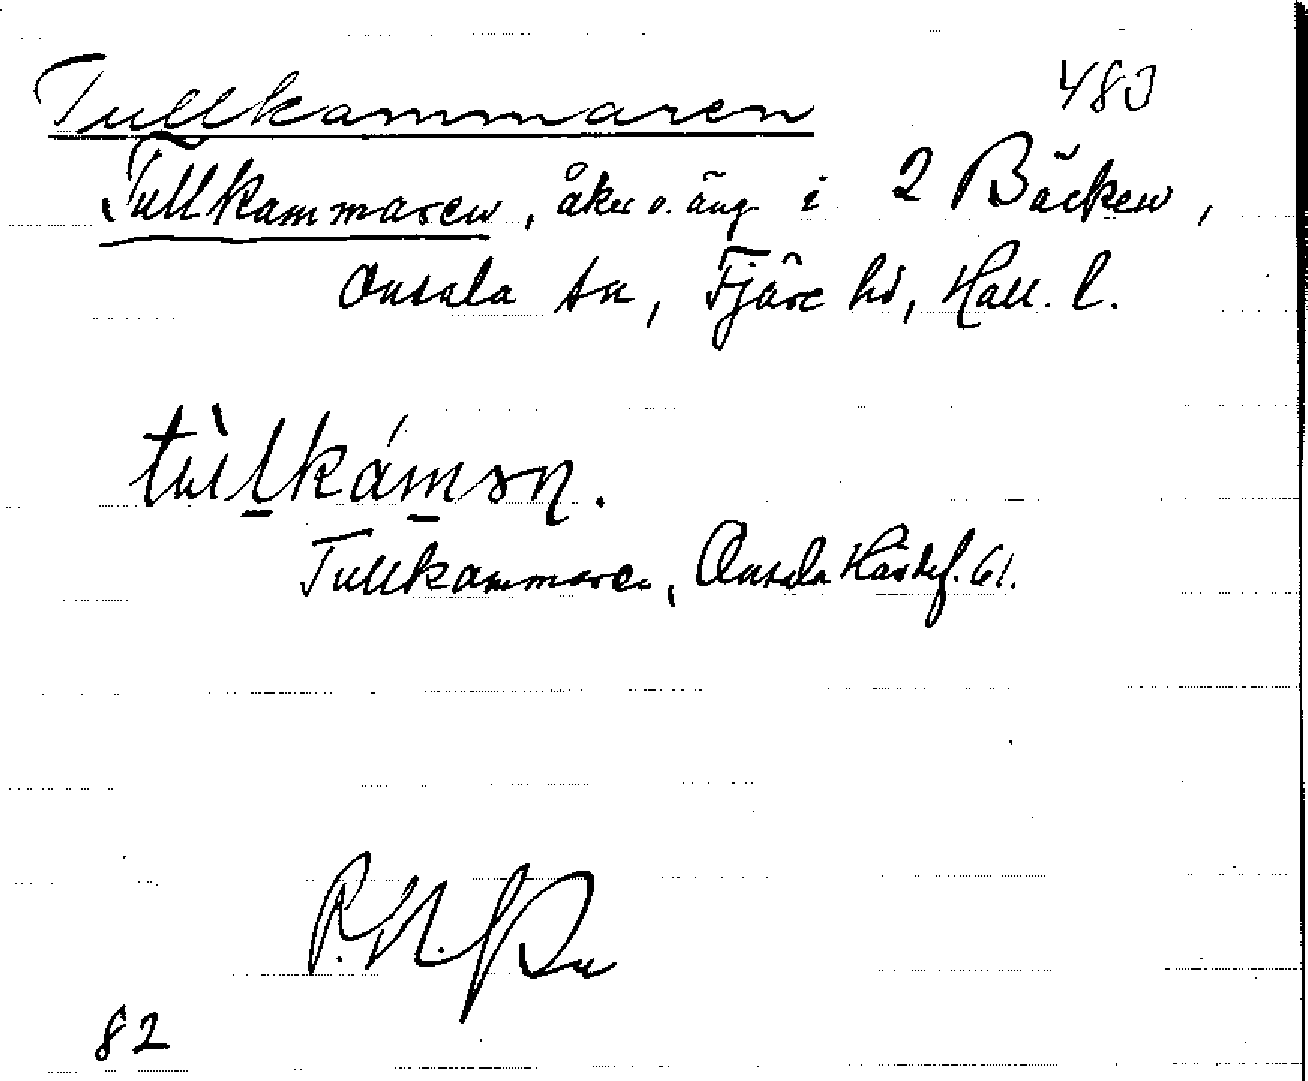 Tullkammaren 483
Tullkammaren, åker o. äng i 2 Bäcken,
Onsala sn, Fjäre hd, Hall. l.
tùl̲kám̲ən.
Tullkammaren, Onsala Hästef. 61.
82